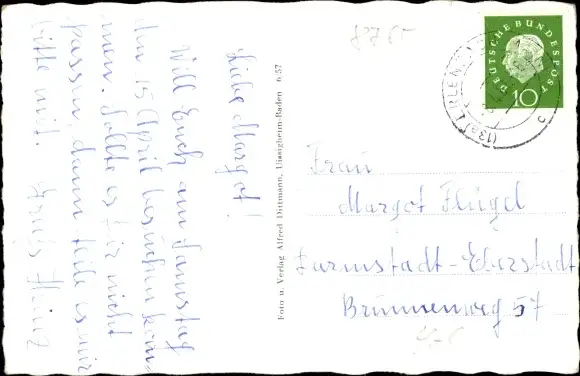 Liebe Margot!
Will Euch am Samstag
den 15 April besuchen kom-
men. Sollte es Dir nicht
passen, dann teile es mir
bitte mit. Gruß Heinz
Foto u. Verlag Alfred Dittmann, Uissigheim-Baden 6/57
DEUTSCHE BUNDESPOST
10
(13a)
Frau
Margot Flügel
Darmstadt-Eberstadt
Brunnenweg 57